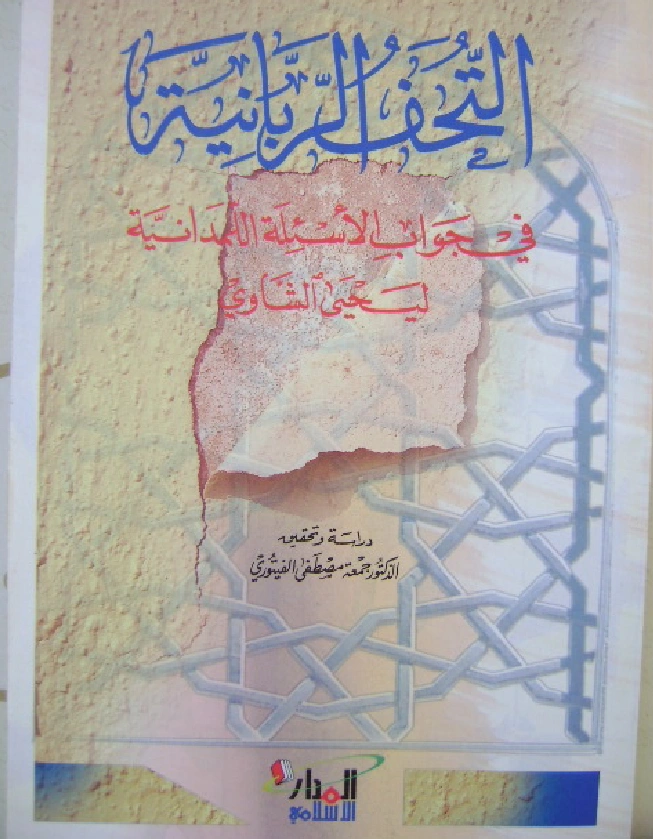 التُّحَفُ الرَّبَّانِيَّة
في جَوَابِ الأسْئِلَة اللَّمدَانيَّة
ليَحيَى الشَّاوِي
دراسة وتحقيق
الدكتور جمعة مصطفى الفيتوري
المدار
الاسلامي